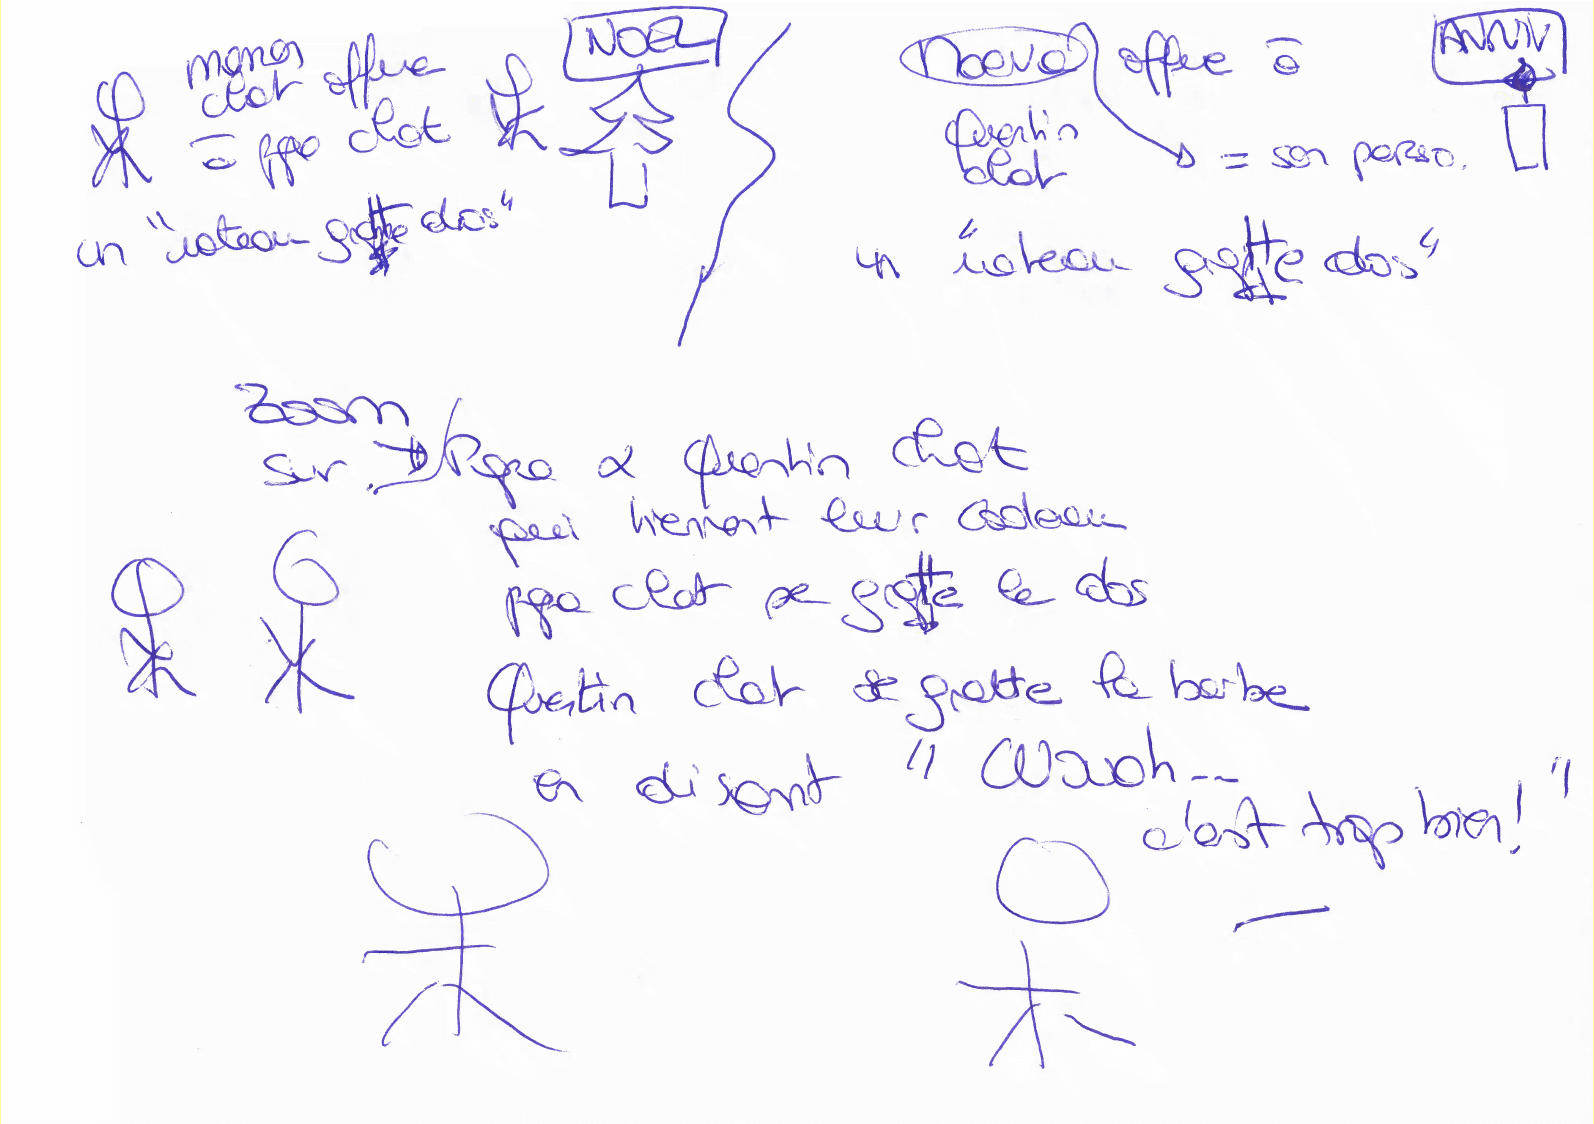 maman
chat offre
à papa chat
un "rateau gratte dos"
NOEL
Noeva offre à
Quentin
chat
= son perso.
un "rateau gratte dos"
ANNIV
Zoom
sur → Papa & Quentin chat
qui tiennent leur cadeau
papa chat se gratte le dos
Quentin chat se gratte la barbe
en disant "Waouh...
c'est trop bien!"